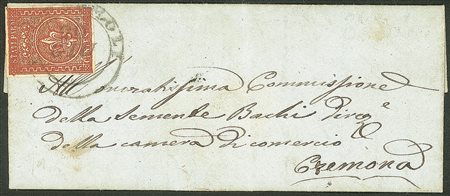 All' onoratissima Commissione
della semente Bachi
della camera di comercio
Cremona